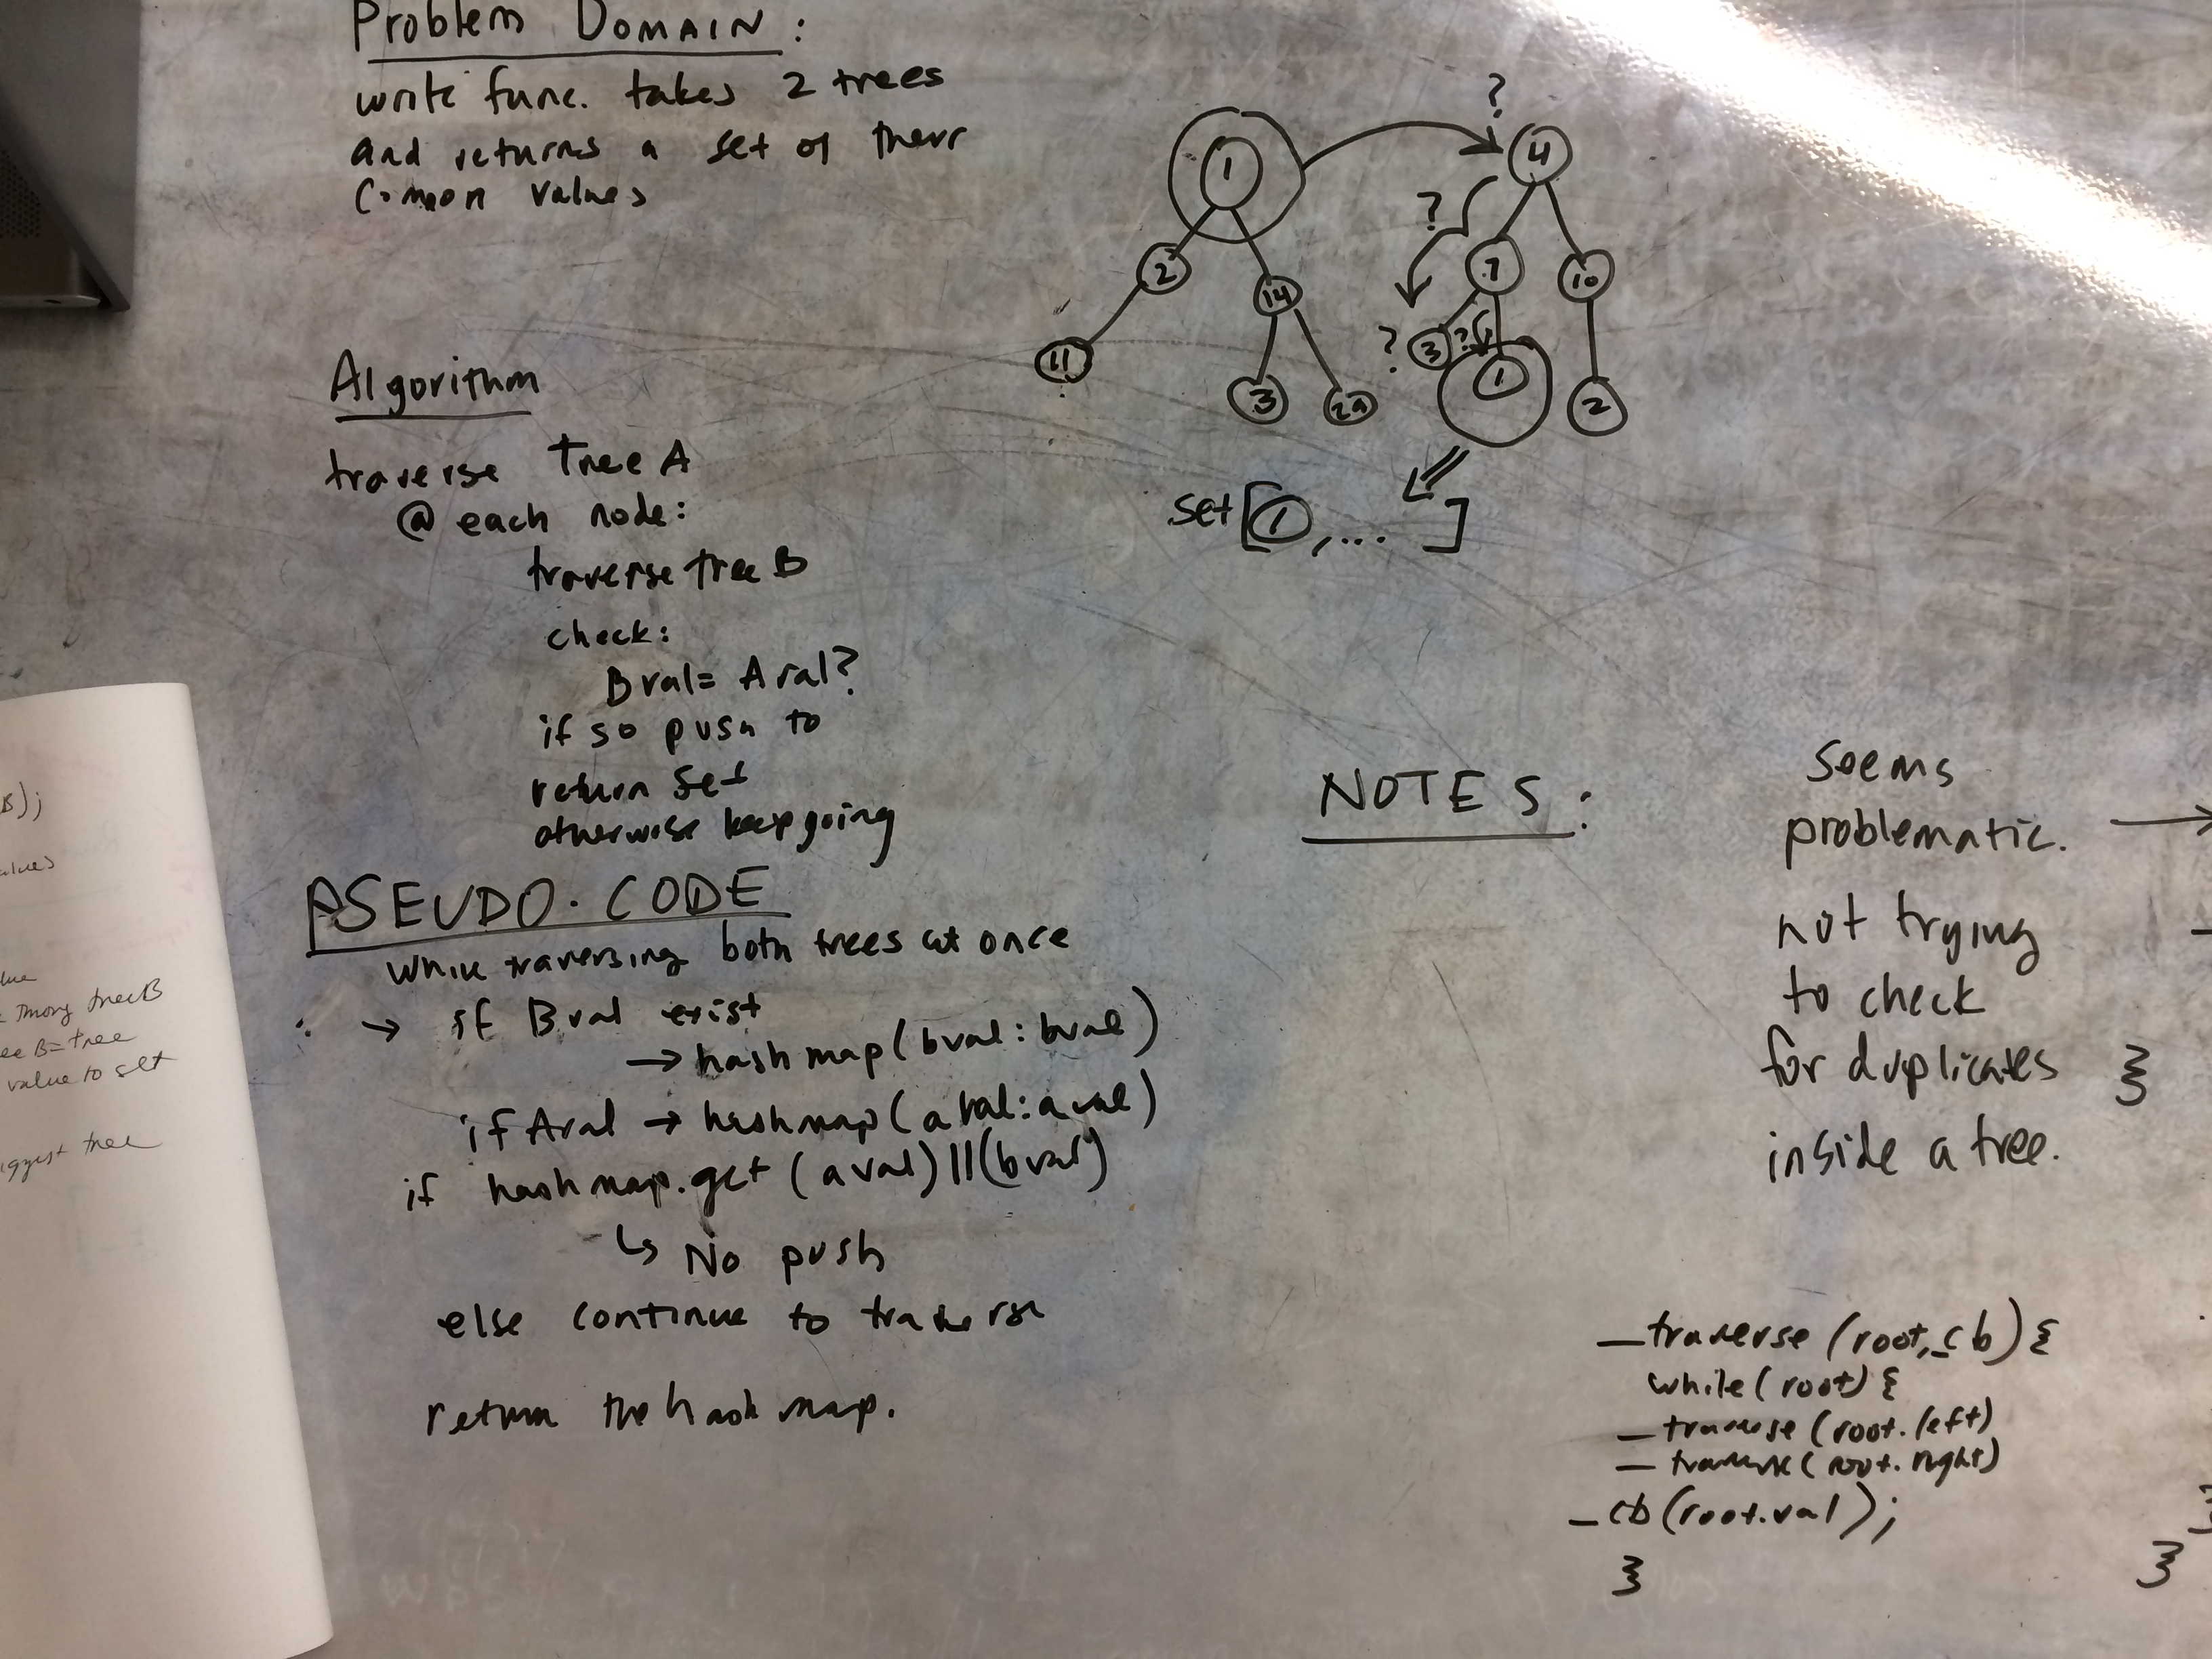 Problem DOMAIN:
write func. takes 2 trees
and returns a set of their
common values
Algorithm
traverse tree A
@ each node:
traverse tree B
check:
Bval = Aval?
if so push to
return set
otherwise keep going
PSEUDO. CODE
while traversing both trees at once
: → if Bval exist
→ hashmap(bval:bval)
if Aval → hashmap(aval:aval)
if hashmap.get(aval)||(bval)
↳ No push
else continue to traverse
return the hashmap.
1
2
14
11
3
29
?
4
?
7
10
?
3
??
1
2
set[1,...]
NOTES:
Seems
problematic.
not trying
to check
for duplicates
inside a tree.
_traverse(root, cb){
while(root){
_traverse(root.left)
_traverse(root.right)
_cb(root.val);
}
}
}
B);
values
value
tree B
B = tree
value to set
tree